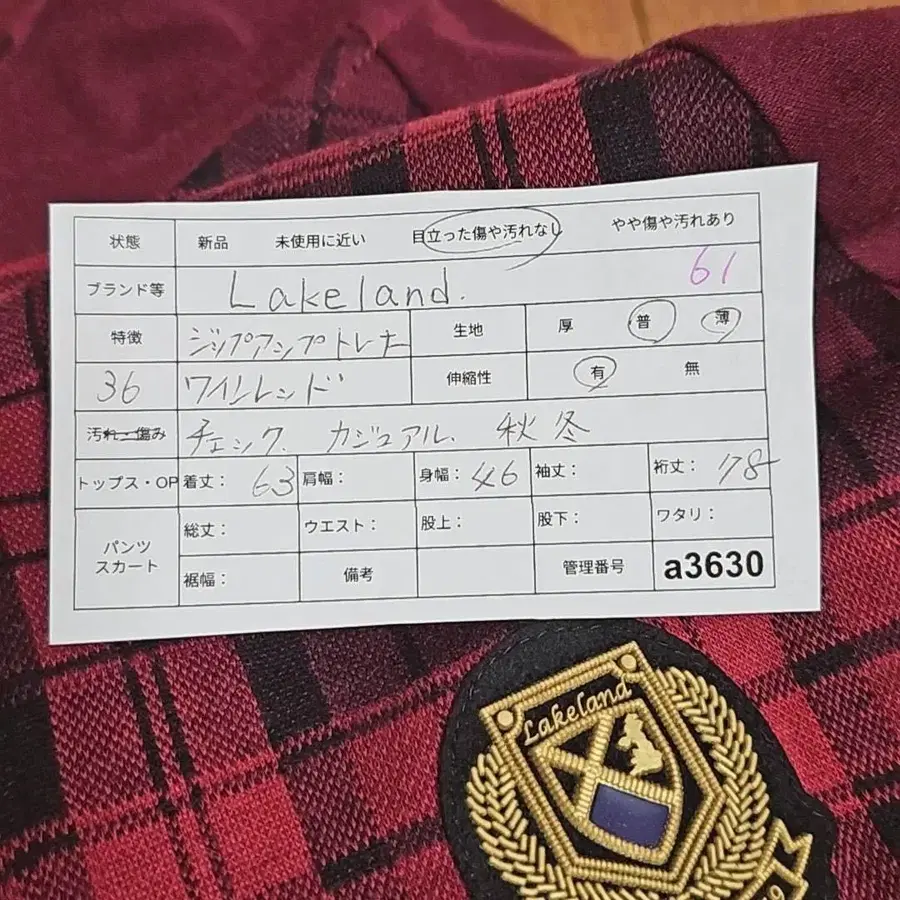 状態 新品 未使用に近い 目立った傷や汚れなし やや傷や汚れあり
ブランド等 Lakeland. 61
特徴 ジップアップトレナー 生地 厚 普 薄
36 ワインレッド 伸縮性 有 無
汚れ・傷み チェック、カジュアル、秋冬
トップス・OP 着丈: 63 肩幅: 身幅: 46 袖丈: 裄丈: 78
パンツ スカート 総丈: ウエスト: 股上: 股下: ワタリ:
裾幅: 備考 管理番号 a3630
Lakeland